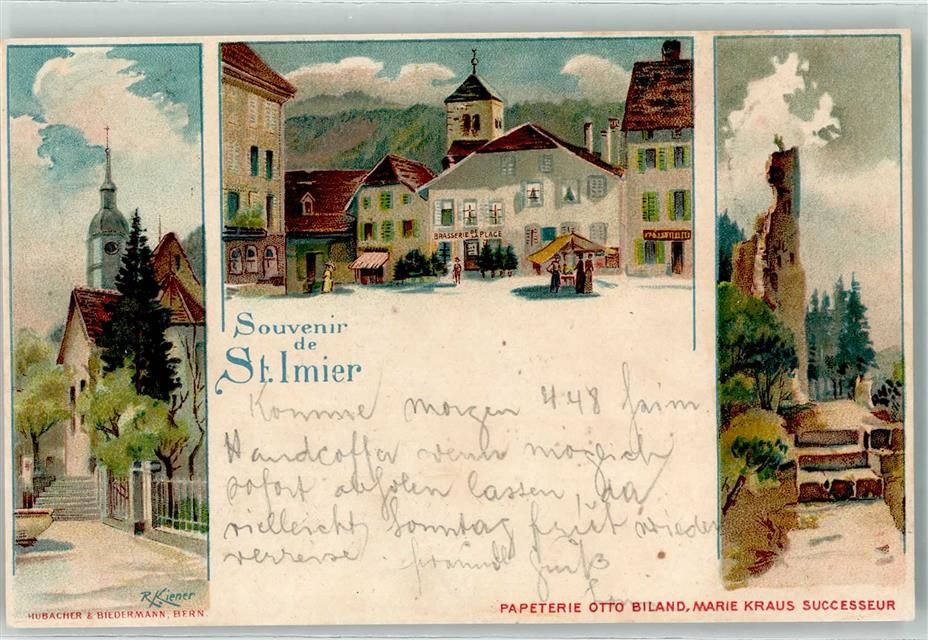 BRASSERIE DE LA PLACE
Souvenir
de
St. Imier
Komme morgen 4 48 heim.
Handcoffer wenn möglich
sofort abholen lassen, da
vielleicht Sonntag früh wieder
verreise.
R. Kiener
HUBACHER & BIEDERMANN, BERN.
PAPETERIE OTTO BILAND, MARIE KRAUS SUCCESSEUR